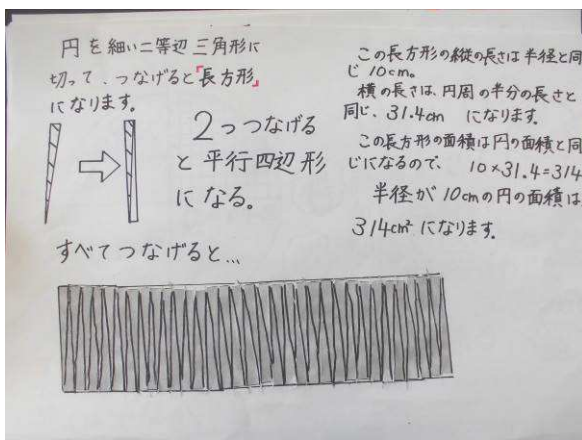 円を細い二等辺三角形に
切って、つなげると「長方形」
になります。
2つつなげる
と平行四辺形
になる。
すべてつなげると…
この長方形の縦の長さは半径と同
じ10cm。
横の長さは、円周の半分の長さと
同じ、31.4cm になります。
この長方形の面積は円の面積と同
じになるので、 10×31.4=314
半径が10cmの円の面積は
314cm²になります。